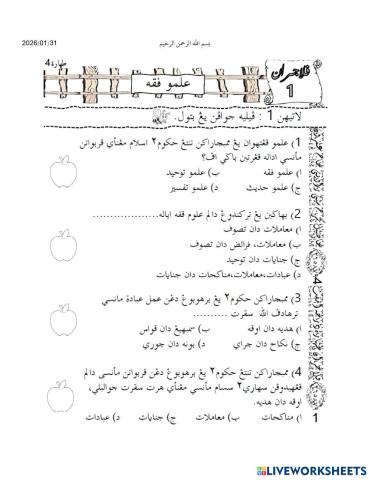 2026/01/31
بسم الله الرحمن الرحيم
طهارة 4
ڤلاجرن 1
علمو فقه
لاتيهن 1 : ڤيليه جواڤن يڠ بتول.
1) علمو ڤڠتهوان يڠ ممبچاراكن تنتڠ حكوم٢ اسلام مڠناءي ڤربواتن
مأنسي اداله ڤڠرتين باݢي اڤ؟
ا) علمو فقه ب) علمو توحيد
ج) علمو حديث د) علمو تفسير
2) بهاݢين يڠ تركندوڠ دالم علوم فقه اياله..................
ا) معاملات دان تصوف
ب) معاملات، فرائض دان تصوف
ج) جنايات دان توحيد
د) عبادات،معاملات،مناكحات دان جنايات
3) ممبچاراكن حكوم٢ يڠ برهوبوڠ دڠن عمل عبادة مأنسي
ترهادڤ الله سڤرت ..........
ا) هديه دان اوڤه ب) سمبهيڠ دان ڤواس
ج) نكاح دان چراي د) بونه دان چوري
4) ممبچاراكن تنتڠ حكوم٢ يڠ برهوبوڠ دڠن ڤربواتن مأنسي دالم
كهيدوڤن سهاري٢ سسام مأنسي مڠناءي هرت سڤرت جوابلي،
اوڤه دان هديه.
ا) مناكحات ب) معاملات ج) جنايات د) عبادات
1
LIVEWORKSHEETS